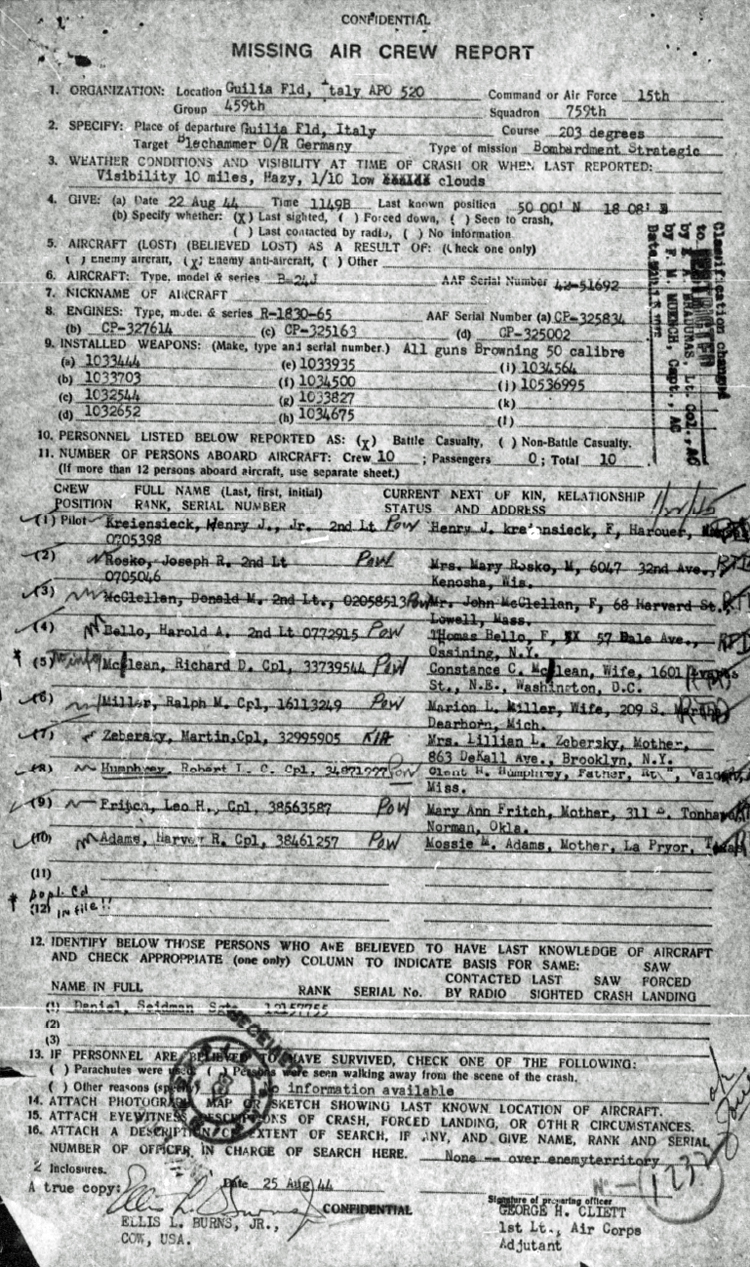 CONFIDENTIAL
MISSING AIR CREW REPORT
1. ORGANIZATION: Location Guilia Fld, Italy APO 520 Command or Air Force 15th
Group 459th Squadron 759th
2. SPECIFY: Place of departure Guilia Fld, Italy Course 203 degrees
Target Blechammer O/R Germany Type of mission Bombardment Strategic
3. WEATHER CONDITIONS AND VISIBILITY AT TIME OF CRASH OR WHEN LAST REPORTED:
Visibility 10 miles, Hazy, 1/10 low clouds
4. GIVE: (a) Date 22 Aug 44 Time 1149B Last known position 50 00' N 18 08' E
(b) Specify whether: (X) Last sighted, ( ) Forced down, ( ) Seen to crash,
( ) Last contacted by radio, ( ) No information.
5. AIRCRAFT (LOST) (BELIEVED LOST) AS A RESULT OF: (Check one only)
( ) Enemy aircraft, (X) Enemy anti-aircraft, ( ) Other
6. AIRCRAFT: Type, model & series B-24J AAF Serial Number 42-51692
7. NICKNAME OF AIRCRAFT
8. ENGINES: Type, model & series R-1830-65 AAF Serial Number (a) CP-325834
(b) CP-327614 (c) CP-325163 (d) CP-325002
9. INSTALLED WEAPONS: (Make, type and serial number.) All guns Browning 50 calibre
(a) 1033444 (e) 1033935 (i) 1034564
(b) 1033703 (f) 1034500 (j) 10536995
(c) 1032544 (g) 1033827 (k)
(d) 1032652 (h) 1034675 (l)
10. PERSONNEL LISTED BELOW REPORTED AS: (X) Battle Casualty, ( ) Non-Battle Casualty.
11. NUMBER OF PERSONS ABOARD AIRCRAFT: Crew 10 ; Passengers 0; Total 10
(If more than 12 persons aboard aircraft, use separate sheet.)
Classification changed
to
by E. A. BRADUNAS, Lt. Col., AC
by F. M. MUENCH, Capt., AC
Date
CREW FULL NAME (Last, first, initial) CURRENT NEXT OF KIN, RELATIONSHIP
POSITION RANK, SERIAL NUMBER STATUS AND ADDRESS
(1) Pilot Kreiensieck, Henry J., Jr. 2nd Lt POW Henry J. kreiensieck, F, Harouer,
0705398
(2) Rosko, Joseph R. 2nd Lt POW Mrs. Mary Rosko, M, 6047 32nd Ave.,
0705046 Kenosha, Wis.
(3) McClellan, Donald M. 2nd Lt., 02058513 POW Mr. John McClellan, F, 68 Harvard St.,
Lowell, Mass.
(4) Bello, Harold A. 2nd Lt 0772915 POW Thomas Bello, F, 57 Dale Ave.,
Ossining, N.Y.
(5) McLean, Richard D. Cpl, 33739544 POW Constance C. McLean, Wife, 1601
St., N.E., Washington, D.C.
(6) Miller, Ralph M. Cpl, 16113249 POW Marion L. Miller, Wife, 209 S.
Dearborn, Mich.
(7) Zebersky, Martin, Cpl, 32995905 KIA Mrs. Lillian L. Zebersky, Mother,
863 DeKall Ave., Brooklyn, N.Y.
(8) Humphrey, Robert L. C. Cpl, POW Humphrey, Father,
Miss.
(9) Fritch, Leo H., Cpl, 38563587 POW Mary Ann Fritch, Mother, 311
Norman, Okla.
(10) Adams, Harvey R. Cpl, 38461257 POW Mossie M. Adams, Mother, La Pryor,
(11)
(12) in file!!
12. IDENTIFY BELOW THOSE PERSONS WHO ARE BELIEVED TO HAVE LAST KNOWLEDGE OF AIRCRAFT
AND CHECK APPROPRIATE (one only) COLUMN TO INDICATE BASIS FOR SAME: SAW
CONTACTED LAST SAW FORCED
NAME IN FULL RANK SERIAL No. BY RADIO SIGHTED CRASH LANDING
(1) Daniel, Seidman Sgt. 12157755
(2)
(3)
13. IF PERSONNEL ARE BELIEVED TO HAVE SURVIVED, CHECK ONE OF THE FOLLOWING:
( ) Parachutes were used ( ) Persons were seen walking away from the scene of the crash.
( ) Other reasons (specify) No information available
14. ATTACH PHOTOGRAPH, MAP OR SKETCH SHOWING LAST KNOWN LOCATION OF AIRCRAFT.
15. ATTACH EYEWITNESS DESCRIPTIONS OF CRASH, FORCED LANDING, OR OTHER CIRCUMSTANCES.
16. ATTACH A DESCRIPTION OF EXTENT OF SEARCH, IF ANY, AND GIVE NAME, RANK AND SERIAL
NUMBER OF OFFICER IN CHARGE OF SEARCH HERE. None -- over enemyterritory
2 Inclosures.
1232
A true copy: Date 25 Aug 44
CONFIDENTIAL
Signature of preparing officer
ELLIS L. BURNS, JR., GEORGE H. CLIETT
COW, USA. 1st Lt., Air Corps
Adjutant